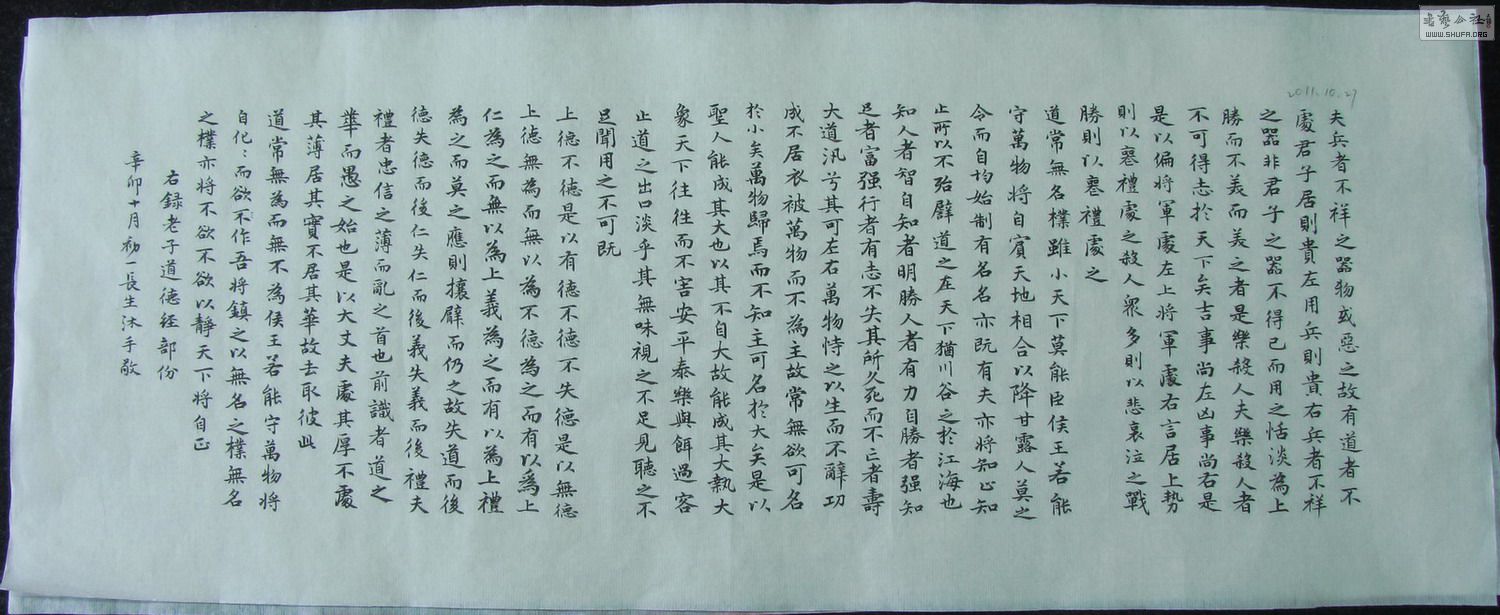 书艺公社
WWW.SHUFA.ORG
2011.10.27
夫兵者不祥之器物或惡之故有道者不
處君子居則貴左用兵則貴右兵者不祥
之器非君子之器不得已而用之恬淡為上
勝而不美而美之者是樂殺人夫樂殺人者
不可得志於天下矣吉事尚左凶事尚右是
是以偏將軍處左上將軍處右言居上勢
則以喪禮處之殺人眾多則以悲哀泣之戰
勝則以喪禮處之
道常無名樸雖小天下莫能臣侯王若能
守萬物將自賓天地相合以降甘露人莫之
令而自均始制有名名亦既有夫亦將知止知
止所以不殆譬道之在天下猶川谷之於江海也
知人者智自知者明勝人者有力自勝者强知
足者富强行者有志不失其所久死而不亡者壽
大道汎兮其可左右萬物恃之以生而不辭功
成不居衣被萬物而不為主故常無欲可名
於小矣萬物歸焉而不知主可名於大矣是以
聖人能成其大也以其不自大故能成其大執大
象天下往往而不害安平泰樂與餌過客
止道之出口淡乎其無味視之不足見聽之不
足聞用之不可既
上德不德是以有德不德不失德是以無德
上德無為而無以為不德為之而有以為上
仁為之而無以為上義為之而有以為上禮
為之而莫之應則攘臂而仍之故失道而後
德失德而後仁失仁而後義失義而後禮夫
禮者忠信之薄而亂之首也前識者道之
華而愚之始也是以大丈夫處其厚不處
其薄居其實不居其華故去取彼此
道常無為而無不為侯王若能守萬物將
自化〻而欲不作吾將鎮之以無名之樸無名
之樸亦將不欲不欲以靜天下將自正
右録老子道德经部份
辛卯十月初一長生沐手敬